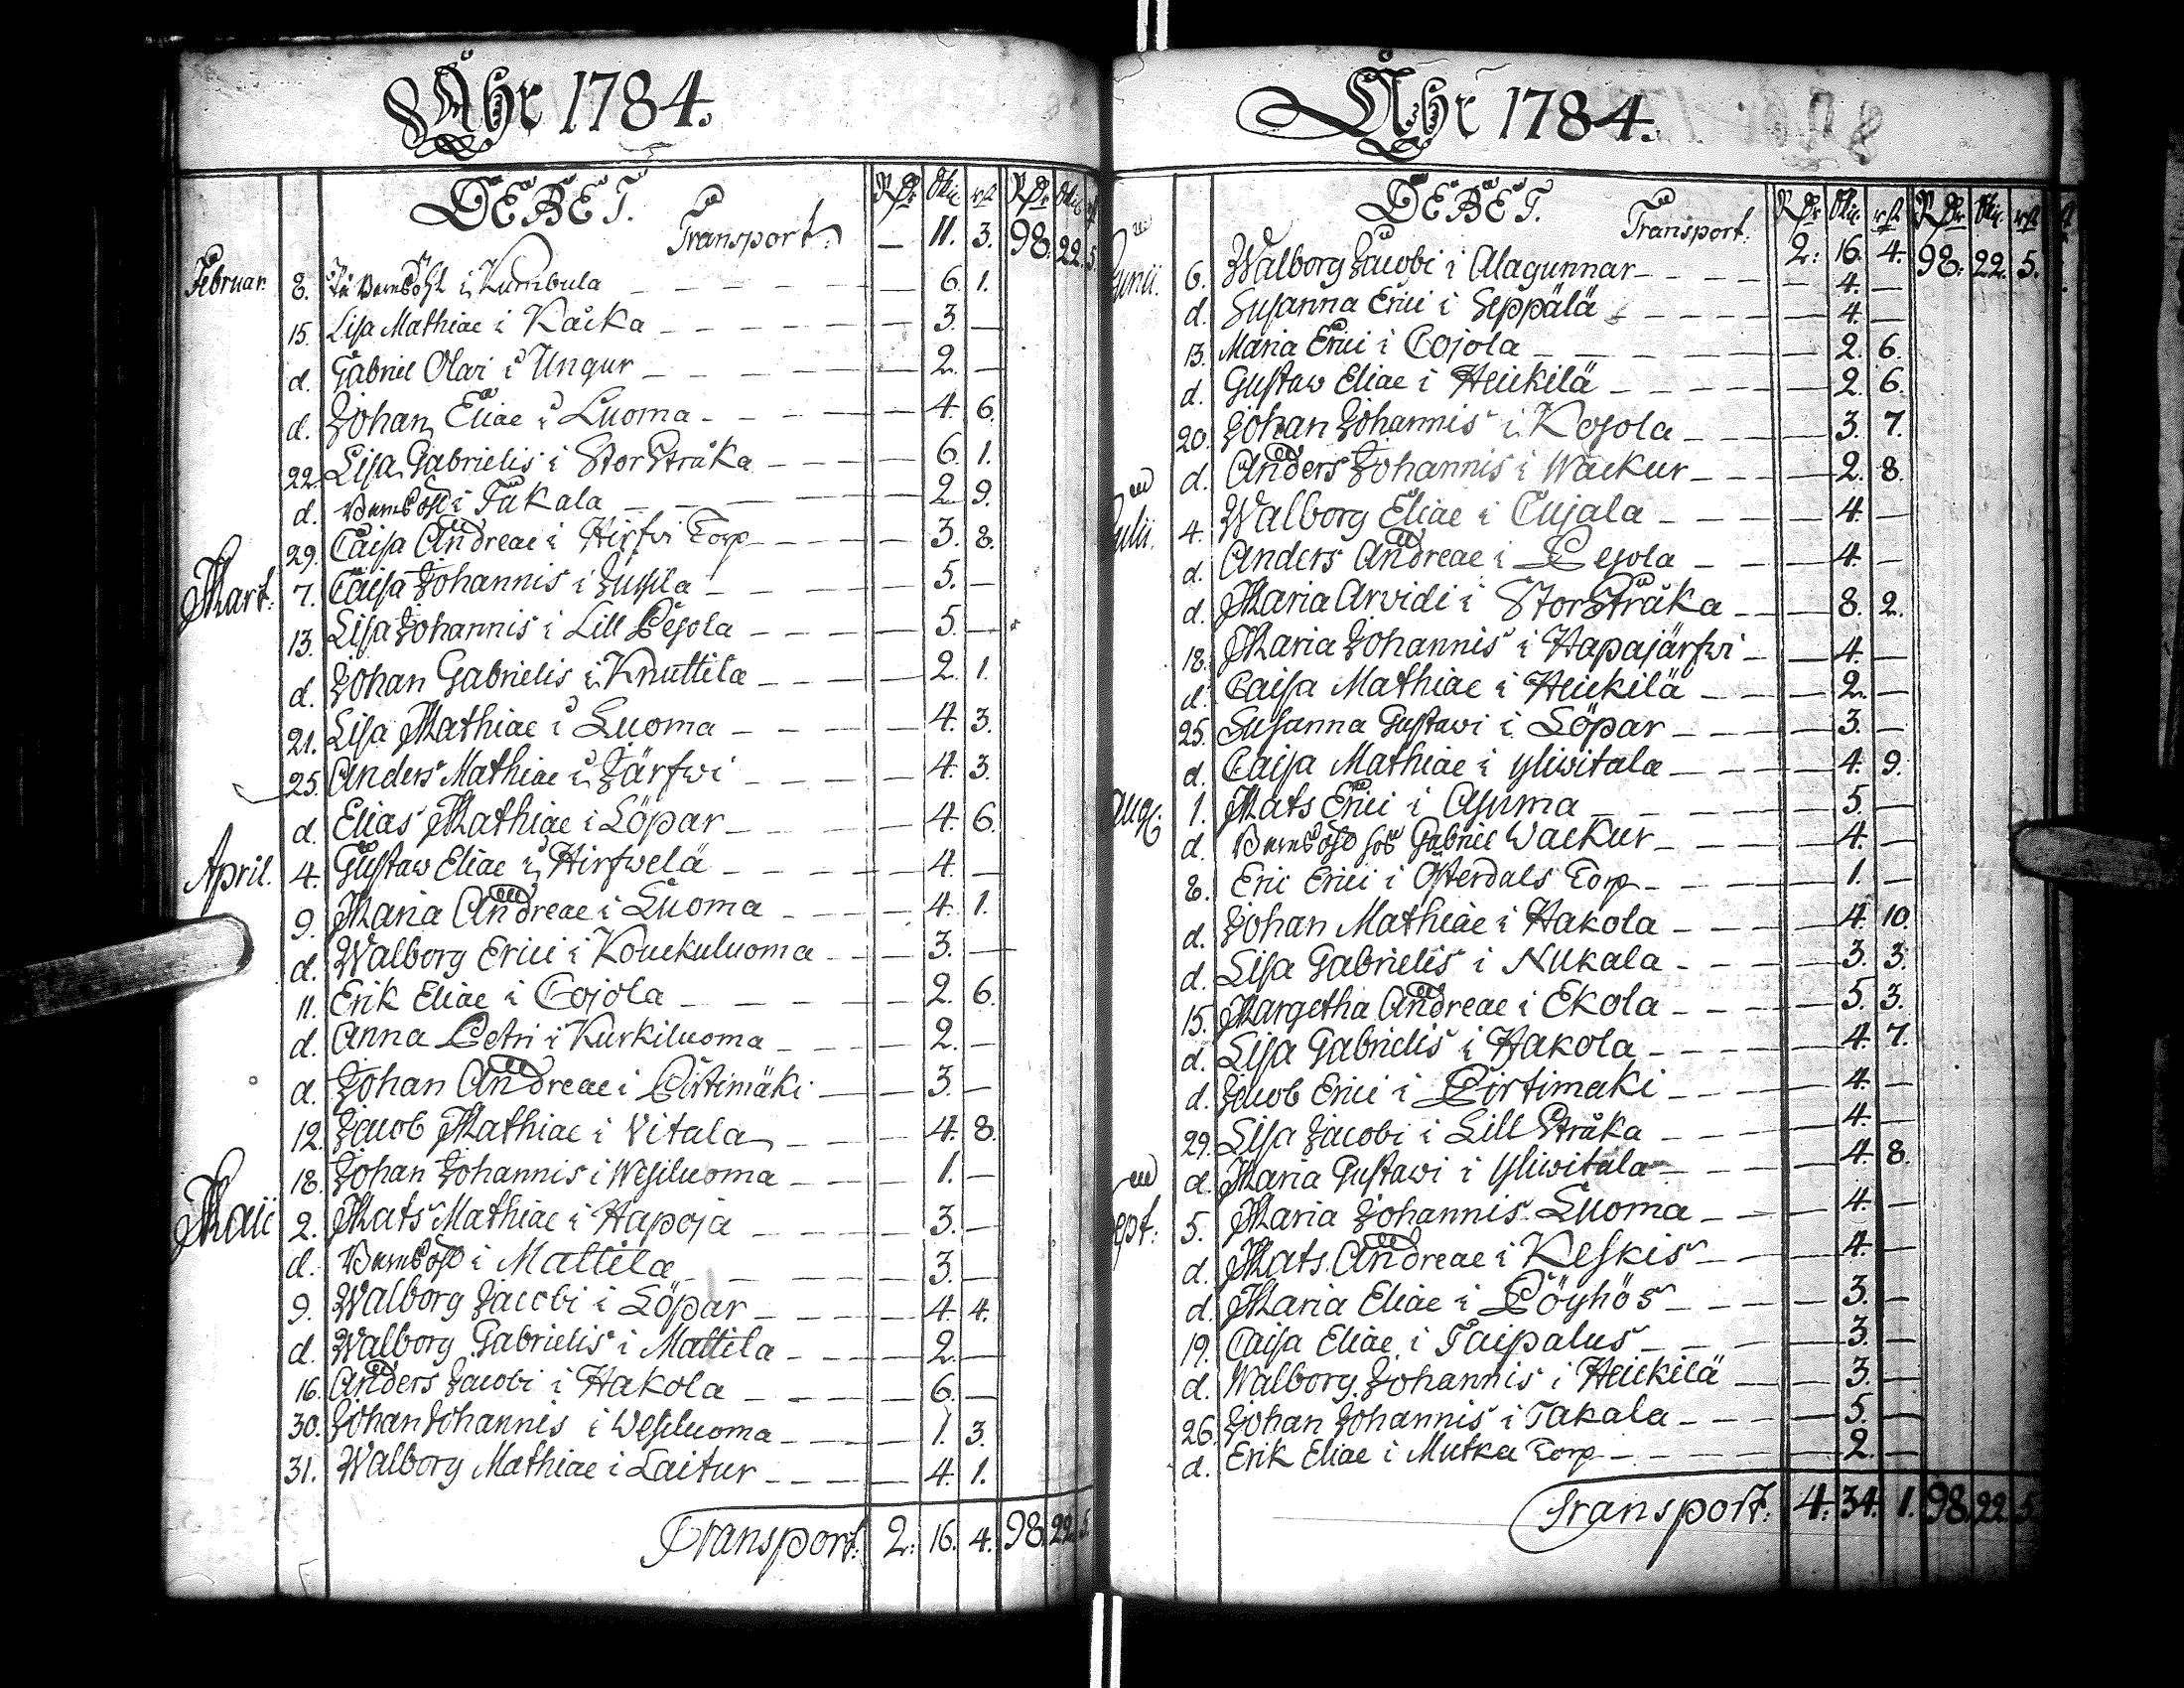 Åhr 1784.
DEBET. Rdr Skil. rst Rdr Skil. rst
Transport. — 11. 3. 98. 22. 5.
Februar. 8. Kumbula — 6. 1.
15. Lisa Mathiae i Kacka — 3. —
d. Gabriel Olai i Ungur — 2. —
d. Johan Eliae i Luoma — 4. 6.
22. Lisa Gabrielis i Stor Stråka — 6. 1.
d. Barnsöhl i Takala — 2. 9.
29. Caisa Andreae i Hirfvi Torp — 3. 8.
Mart. 7. Caisa Johannis i Jussila — 5. —
13. Lisa Johannis i Lill Pesola — 5. —
d. Johan Gabrielis i Knuttila — 2. 1.
21. Lisa Mathiae i Luoma — 4. 3.
25. Anders Mathiae i Järfwi — 4. 3.
d. Elias Mathiae i Löpar — 4. 6.
April. 4. Gustaw Eliae i Hirfwelä — 4. —
9. Maria Andreae i Luoma — 4. 1.
d. Walborg Erici i Kouckuluoma — 3. —
11. Erik Eliae i Cojola — 2. 6.
d. Anna Petri i Kurkiluoma — 2. —
d. Johan Andreae i Pirtimäki — 3. —
12. Jacob Mathiae i Vitala — 4. 8.
18. Johan Johannis i Wesiluoma — 1. —
Maii 2. Mats Mathiae i Hapoja — 3. —
d. Barnsöhl i Mattila — 3. —
9. Walborg Jacobi i Löpar — 4. 4.
d. Walborg Gabrielis i Mattila — 2. —
16. Anders Jacobi i Hakola — 6. —
30. Johan Johannis i Wesiluoma — 1. 3.
31. Walborg Mathiae i Laitur — 4. 1.
Transport. 2. 16. 4. 98. 22. 5.
Åhr 1784.
DEBET. Rdr Skil. rst Rdr Skil. rst
Transport. 2. 16. 4. 98. 22. 5.
Junii. 6. Walborg Jacobi i Alagunnar — 4. —
d. Susanna Erici i Seppälä — 4. —
13. Maria Erici i Cojola — 2. 6.
d. Gustaw Eliae i Heickilä — 2. 6.
20. Johan Johannis i Kojola — 3. 7.
d. Anders Johannis i Wäckur — 2. 8.
Julii. 4. Walborg Eliae i Cujala — 4. —
d. Anders Andreae i Pesola — 4. —
d. Maria Arvidi i Stor Stråka — 8. 2.
18. Maria Johannis i Hapajärfwi — 4. —
d. Caisa Mathiae i Heickilä — 2. —
25. Susanna Gustawi i Löpar — 3. —
d. Caisa Mathiae i Yliwitala — 4. 9.
Aug. 1. Mats Erici i Asuma — 5. —
d. Barnsöhl hos Gabriel Wackur — 4. —
8. Eric Erici i Österdals Torp — 1. —
d. Johan Mathiae i Hakola — 4. 10.
d. Lisa Gabrielis i Nukala — 3. 3.
15. Margetha Andreae i Ekola — 5. 3.
d. Lisa Gabrielis i Hakola — 4. 7.
d. Jacob Erici i Pirtimaki — 4. —
29. Lisa Jacobi i Lill Stråka — 4. —
d. Maria Gustawi i Yliwitala — 4. 8.
Sept. 5. Maria Johannis Luoma — 4. —
d. Mats Andreae i Keskis — 4. —
d. Maria Eliae i Pöyhös — 3. —
19. Caisa Eliae i Taipalus — 3. —
d. Walborg Johannis i Heickilä — 3. —
26. Johan Johannis i Takala — 5. —
d. Erik Eliae i Mutka Torp — 2. —
Transport. 4. 34. 1. 98. 22. 5.